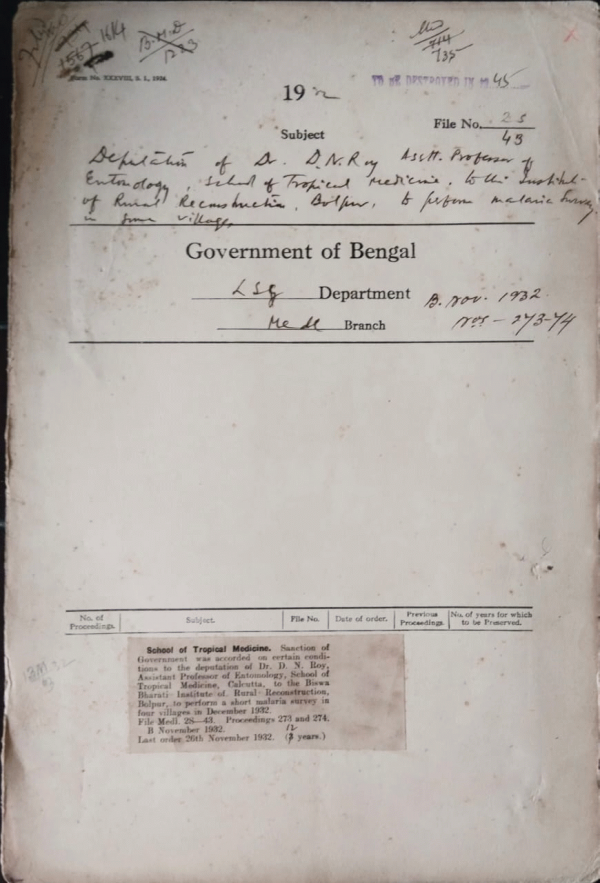 B.M.D
1213
735
Form No. XXXVIII, S. I., 1924.
TO BE DESTROYED IN 1945
19 32
File No. 2S
43
Subject
Deputation of Dr. D.N. Roy Asstt. Professor of
Entomology, School of Tropical Medicine, to the Institute
of Rural Reconstruction, Bolpur, to perform malaria Survey
in some villages
Government of Bengal
LSG Department
B. Nov. 1932
Medl Branch
Nos - 273-74
No. of Proceedings. Subject. File No. Date of order. Previous Proceedings. No. of years for which to be Preserved.
School of Tropical Medicine. Sanction of
Government was accorded on certain condi-
tions to the deputation of Dr. D. N. Roy,
Assistant Professor of Entomology, School of
Tropical Medicine, Calcutta, to the Biswa
Bharati Institute of Rural Reconstruction,
Bolpur, to perform a short malaria survey in
four villages in December 1932.
File Medl. 2S—43. Proceedings 273 and 274.
B November 1932.
12
Last order 26th November 1932. (years.)